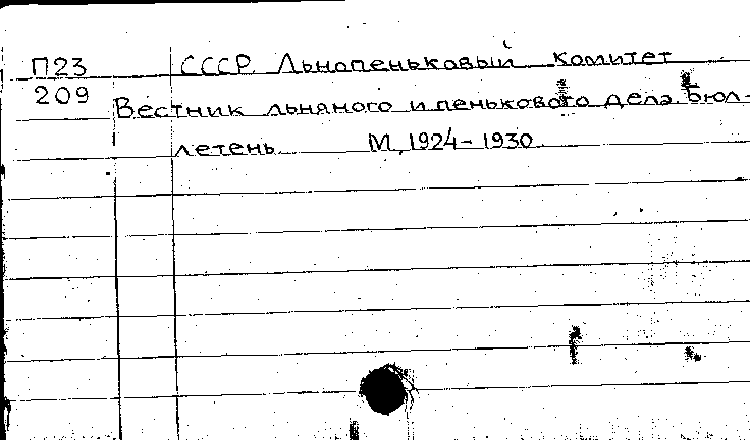 П23 СССР Льнопеньковый комитет
209 Вестник льняного и пенькового дела. Бюл-
летень М, 1924-1930